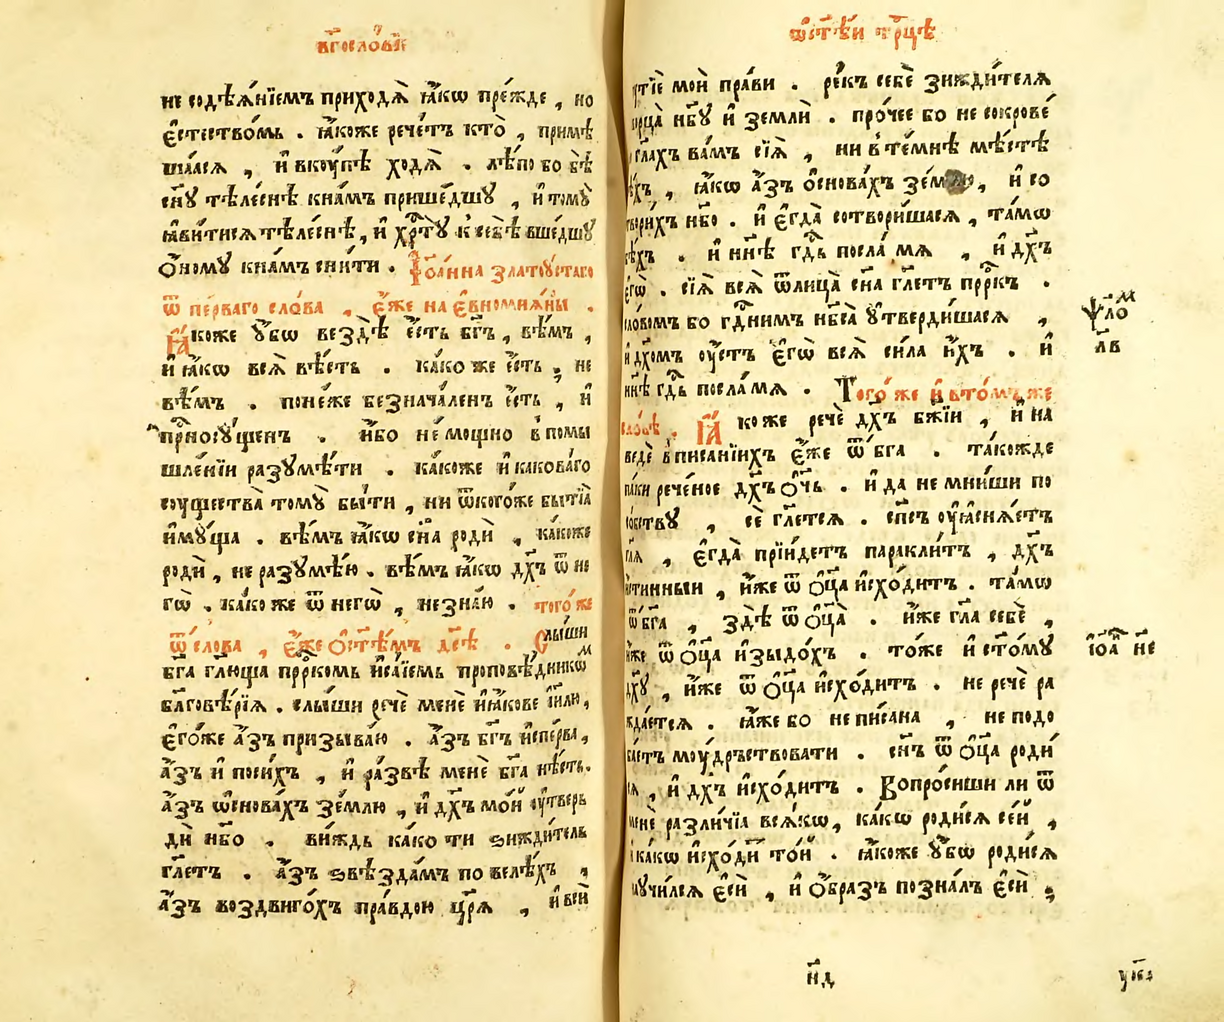 бг҃ословїе
не содѣѧ́нїемъ приходѧ̀ ꙗ҆́кѡ пре́жде , но
є҆стество́мь . ꙗ҆́коже рече́тъ кто̀ , примѣ
ша́лсѧ , и҆ вкꙋ́пѣ ходѧ̀ . лѣ́по бо бѣ
сн҃ꙋ тѣле́снѣ кна́мъ прише́дшꙋ , и҆ томꙋ̀
ꙗ҆ви́тисѧ тѣле́снѣ , и҆ хрⷭ҇тꙋ̀ к себѣ̀ вше́дшꙋ
ѻ҆́номꙋ кна́мъ сни́ти . І҆ѡа́нна златоꙋ́стаго
ѿ пе́рваго сло́ва , є҆́же на є҆вномиѧ́ны .
Ꙗ҆́коже ᲂу҆́бѡ вездѣ̀ є҆́сть бг҃ъ , вѣ́мъ ,
и҆ ꙗ҆́кѡ всѧ̀ вѣ́сть . ка́ко же є҆́сть , не
вѣ́мъ . поне́же безнача́ленъ є҆́сть , и҆
прⷭ҇носꙋ́щенъ . и҆́бо не́мощно в помы
шле́нїи разꙋмѣ́ти . ка́коже и҆ какова́го
сꙋщества̀ томꙋ̀ бы́ти , ни ѿкого́же бытїѧ̀
и҆мꙋ́ща . вѣ́мъ ꙗ҆́кѡ сн҃а родѝ , ка́коже
родѝ , не разꙋмѣ́ю . вѣ́мъ ꙗ҆́кѡ дх҃ъ ѿ не
гѡ̀ . ка́ко же ѿ негѡ̀ , незна́ю . того́же
ѿ сло́ва , є҆́же ѻ҆ ст҃ѣ́мъ дс҃ѣ . Слы́ши
бг҃а гл҃юща прⷪ҇ркомь и҆са́їемь проповѣ́дникѡⷨ
бл҃говѣ́рїѧ . слы́ши речѐ менѐ и҆ꙗ҆́кове і҆и҃лю ,
є҆го́же а҆́зъ призыва́ю . а҆́зъ бг҃ъ и҆спе́рва ,
а҆́зъ и҆ поси́хъ , и҆ ра́звѣ менѐ бг҃а нѣ́сть .
а҆́зъ ѡ҆снова́хъ зе́млю , и҆ дх҃ъ мо́й ᲂу҆тверь
дѝ нб҃о . ви́ждь ка́ко ти ѕижди́тель
гл҃етъ . а҆́зъ ѕвѣзда́мъ по велѣ́хъ ,
а҆́зъ воздвиго́хъ пра́вдою цр҃ѧ , и҆ всѝ
ѡ҆ ст҃ѣ́и трⷪ҇цѣ
пꙋтїѐ моѝ пра́ви . ре́къ себѐ зижди́телѧ
творца̀ нб҃ꙋ и҆ землѝ . про́чее бо не сокрове́
гл҃ахъ ва́мъ сїѧ̀ , ни в те́мнѣ мѣ́стѣ
ѣхъ , ꙗ҆́кѡ а҆́зъ ѻ҆снова́хъ зе́млю , и҆ со
твори́хъ нб҃о . и҆ є҆гда̀ сотвори́шасѧ , та́мѡ
бѣ́хъ . и҆ нн҃ѣ гд҃ь посла́ мѧ , и҆ дх҃ъ
є҆гѡ̀ . сїѧ̀ всѧ̀ ѿ лица̀ сн҃а гл҃етъ прⷪ҇ркъ .
сло́вомъ бо гд҃нимъ нб҃са̀ ᲂу҆тверди́шасѧ ,
и҆ дх҃омъ ᲂу҆́стъ є҆гѡ̀ всѧ̀ си́ла и҆́хъ . и҆
нн҃ѣ гд҃ь посла́ мѧ . Того́ же и҆ в то́мъ же
сло́вѣ . Ꙗ҆́ коже речѐ дх҃ъ бж҃їи , и҆ на
ведѐ в писа́нїихъ є҆́же ѿ бг҃а . та́кожде
па́ки рече́ное дх҃ъ ѻ҆́ч҃ь . и҆ да не мни́ши по
со́бствꙋ , сѐ гл҃етсѧ . сп҃съ ᲂу҆ꙗ҆снѧ́етъ
гл҃ѧ , є҆гда̀ прїи́детъ паракли́тъ , дх҃ъ
и҆́стинныи , и҆́же ѿ ѻ҆ц҃а̀ и҆схо́дитъ . та́мѡ
ѿ бг҃а , здѣ̀ ѿ ѻ҆ц҃а̀ . и҆́же гл҃а себѐ ,
и҆́же ѿ ѻ҆ц҃а̀ и҆зыдо́хъ . то́же и҆ ст҃о́мꙋ
дх҃ꙋ , и҆́же ѿ ѻ҆ц҃а̀ и҆схо́дитъ . не речѐ ра
жда́етсѧ . ꙗ҆́же бо не писана , не подо
ба́етъ мꙋ́дръствовати . сн҃ъ ѿ ѻ҆ц҃а̀ роди́
сѧ , и҆ дх҃ъ и҆схо́дитъ . Вопро́сиши ли ѿ
менѐ разли́чїа всѧ́кѡ , ка́кѡ роди́сѧ се́й ,
и҆ ка́кѡ и҆схо́ди то́й . ꙗ҆́коже ᲂу҆́бѡ роди́сѧ
наᲂучи́лсѧ є҆сѝ , и҆ ѻ҆́бразъ позна́лъ є҆сѝ ;
ѱаⷧ҇ⷨо
лв
і҆ѡа҃ не
н҃д